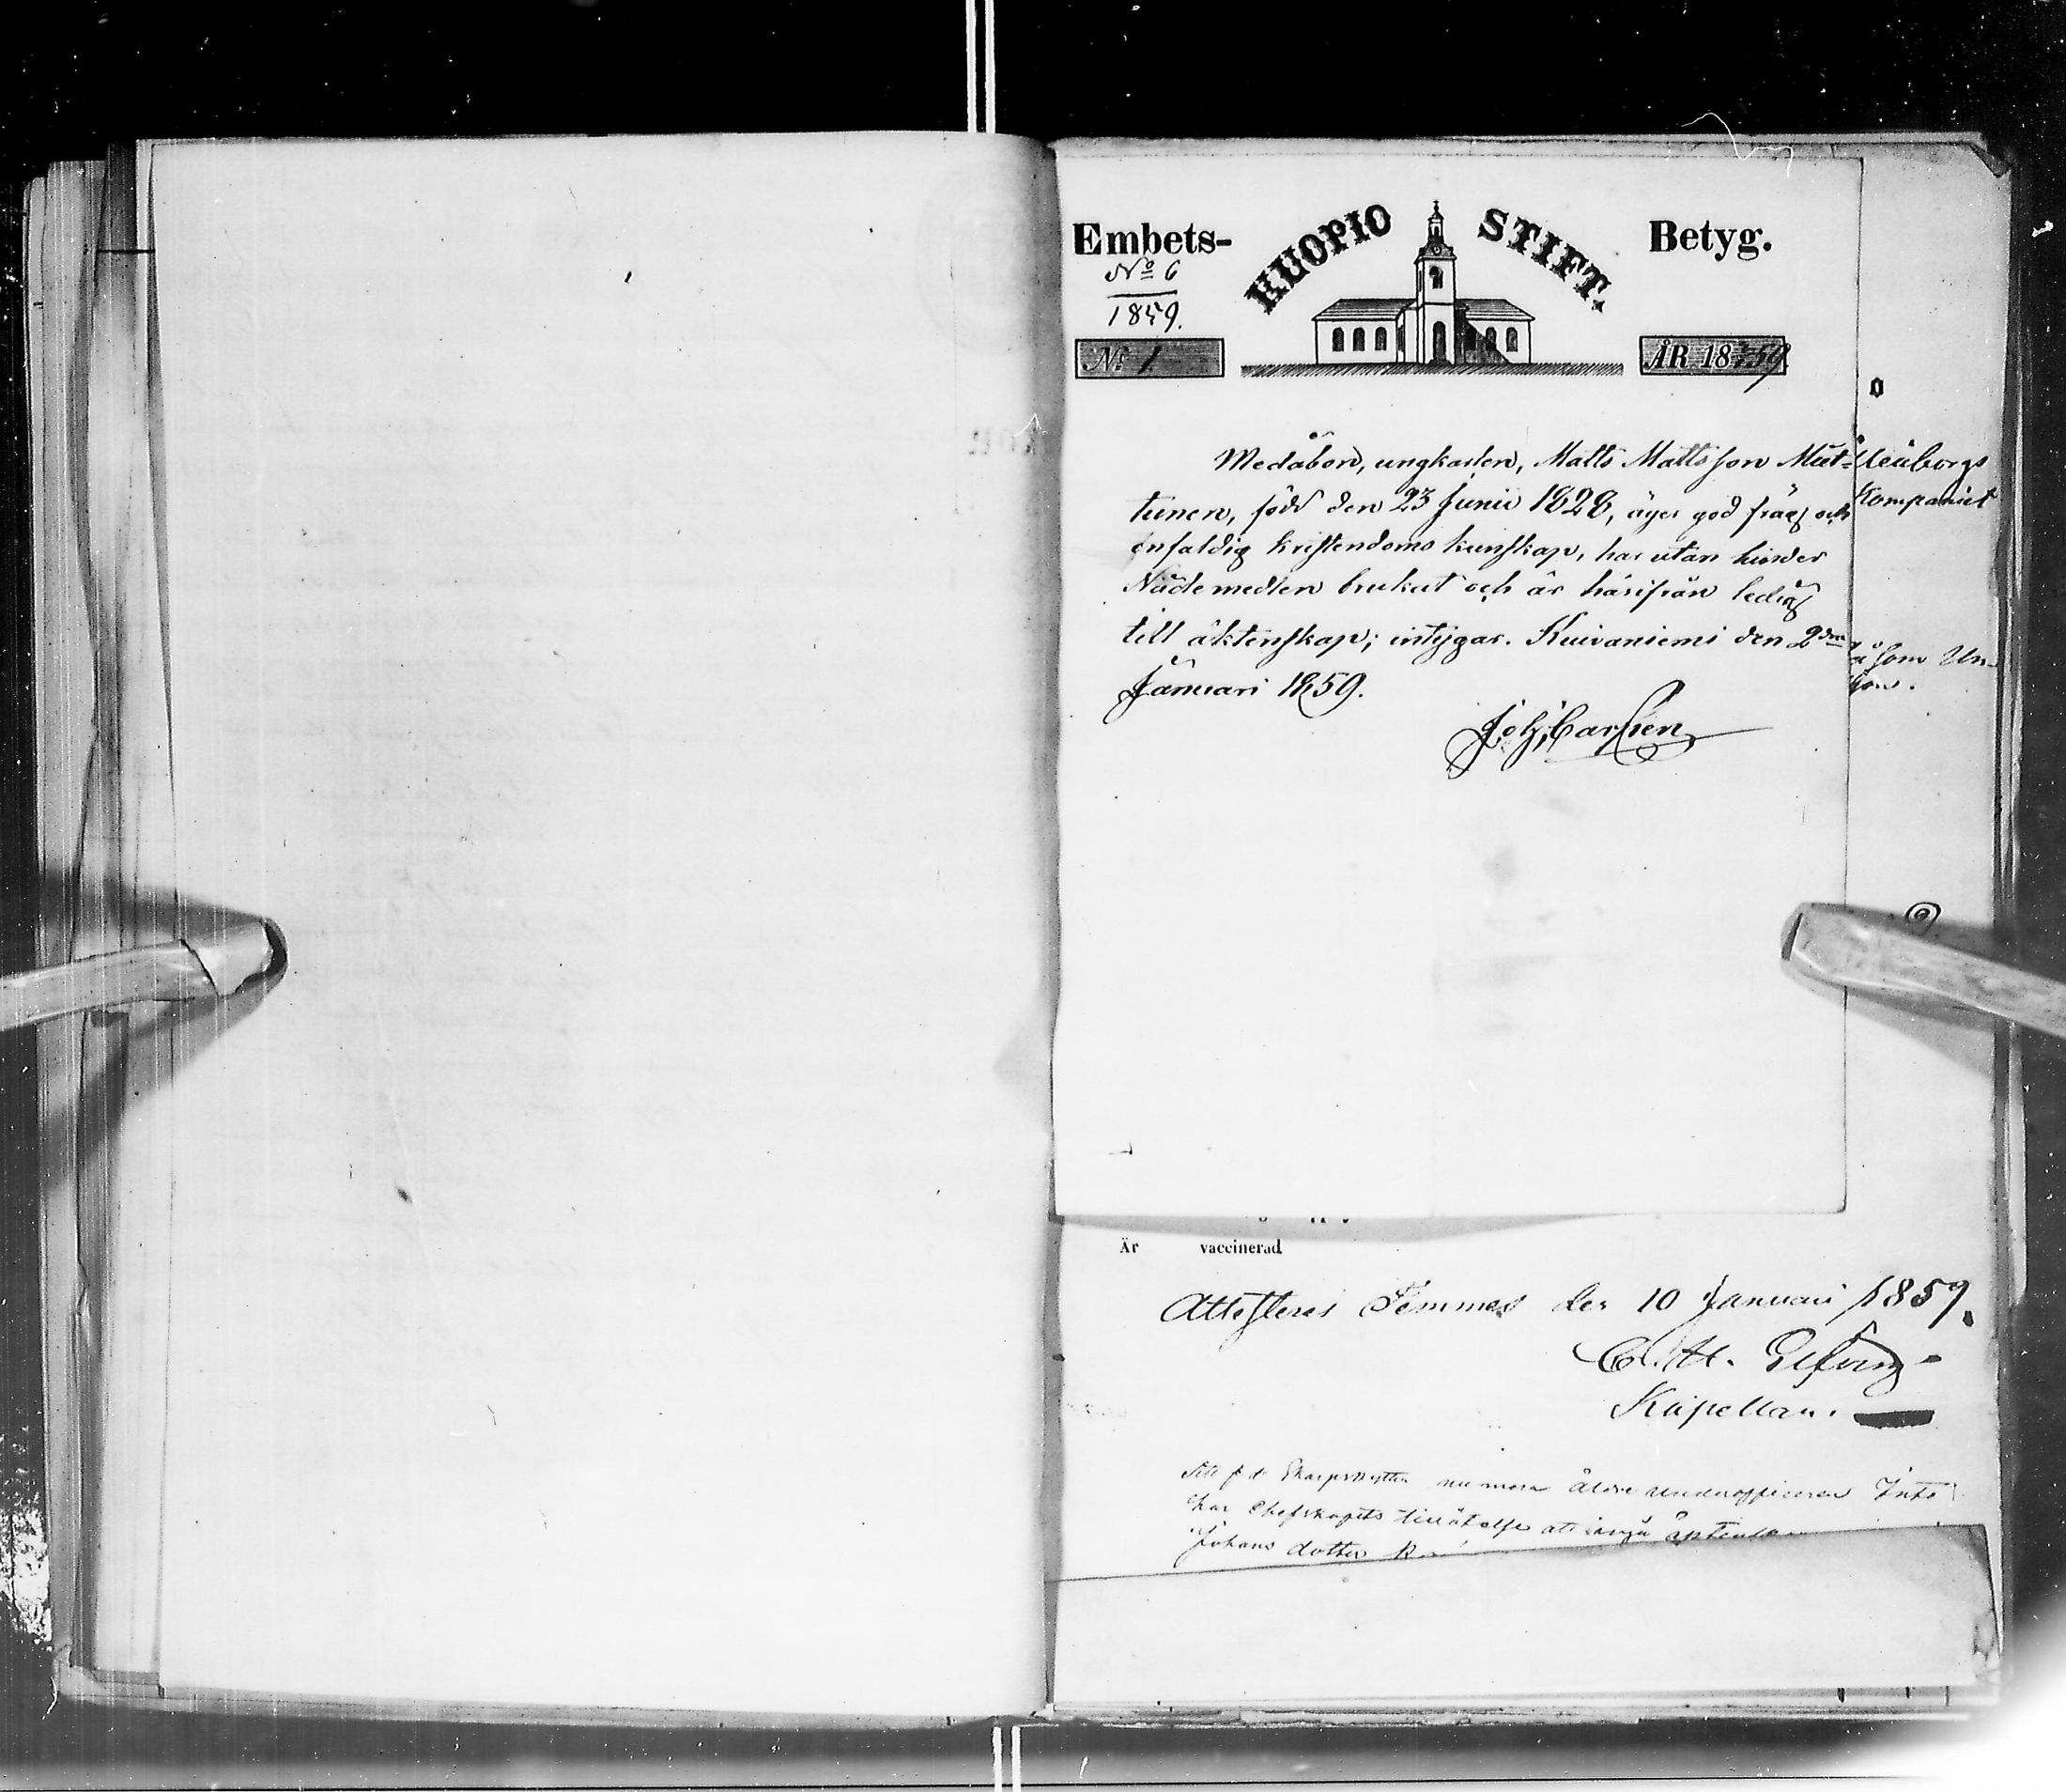 Embets-
KUOPIO STIFT.
Betyg.
No 6
1859.
No 1.
ÅR 1859
Medåbon, ungkarlen, Matts Mattsson Mut-
tunen, född den 23 Junii 1828, äger god fräg och
enfaldig kristendoms kunskap, har utan hinder
Nådemedlen brukat och är härifrån ledig
till äktenskap; intygar. Kuivaniemi den 2dra
Januari 1859.
Joh. Carlsen
Uleåborgs
Kompaniet
som Un-
Är vaccinerad
Attesteras Temmes den 10 Januari 1859.
C. H.
Kapellan.
Att f d Skarpskytten nu mera äldre underofficeren
har Chefskapets tillåtelse att ingå äktenska
Johans dotter